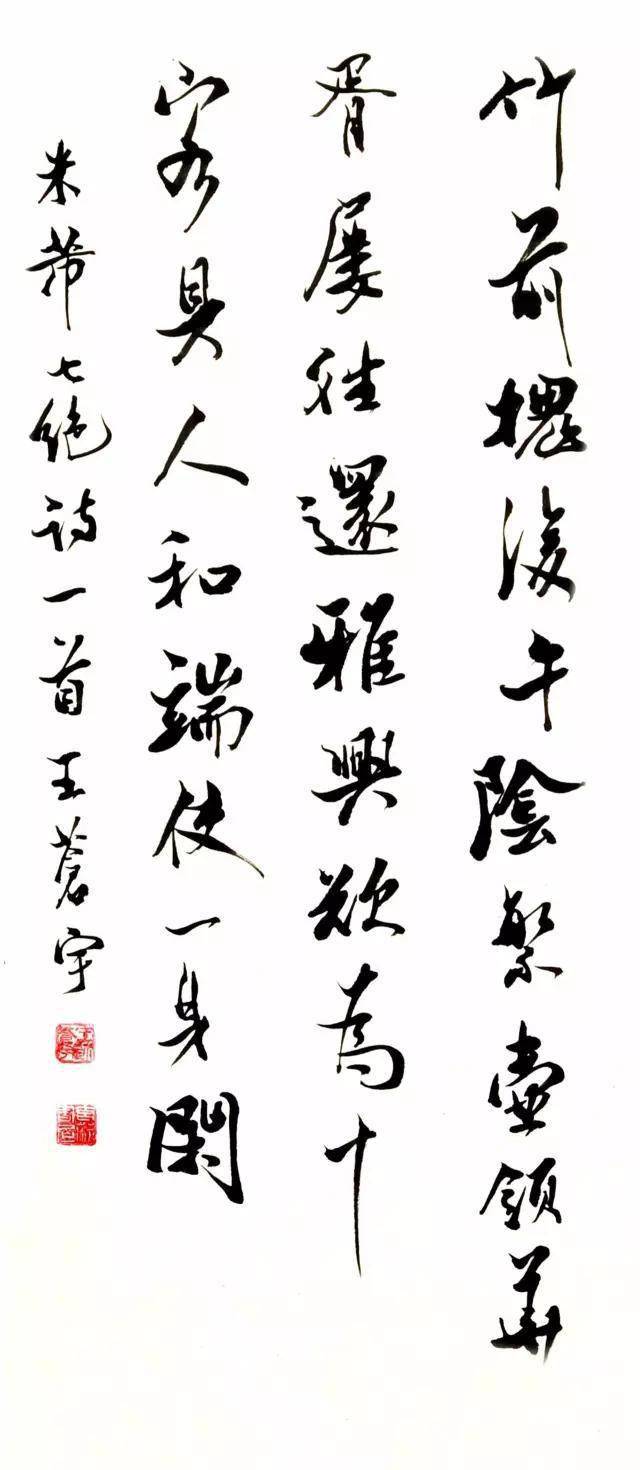 竹前槐後午陰繁壺領華
胥屢往還雅興欲為十
客具人和端使一身閑
米芾七絕詩一首王蒼宇